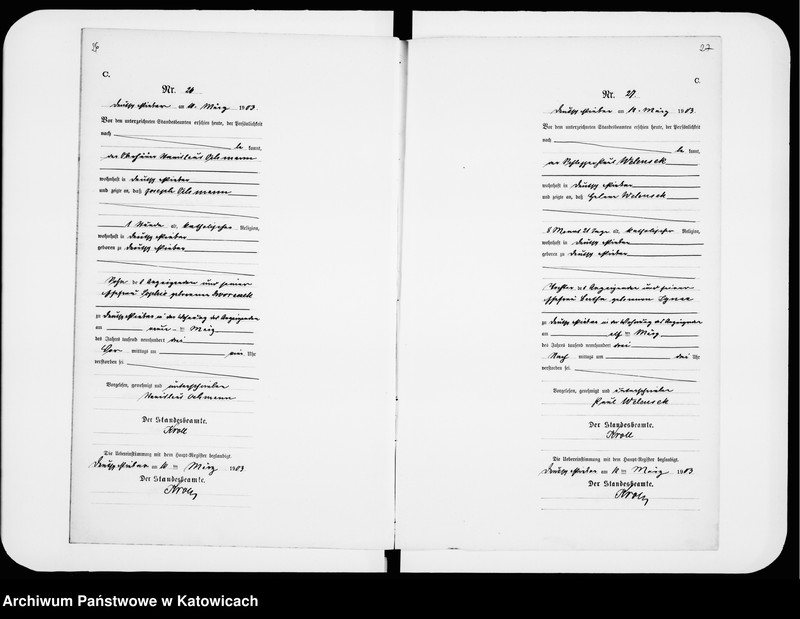 26
C.
Nr. 26
am 11. März 1903
Vor dem unterzeichneten Standesbeamten erschien heute, der Persönlichkeit
nach
kannt,
der Stanislaus Oelsmann
wohnhaft in Deutsch
und zeigte an, daß Joseph Oelsmann
1 Stunde alt, katholischer Religion,
wohnhaft in Deutsch
geboren zu Deutsch
Sohn des Anzeigenden und seiner
Ehefrau Sophie geborenen
zu Deutsch in der Wohnung des Anzeigenden
am März
des Jahres tausend neunhundert drei
Vor mittags um Uhr
verstorben sei.
Vorgelesen, genehmigt und unterschrieben
Stanislaus Oelsmann
Der Standesbeamte.
Kroll
Die Uebereinstimmung mit dem Haupt-Register beglaubigt.
Deutsch am März 1903
Der Standesbeamte.
Kroll
27
C.
Nr. 27.
Deutsch am März 1903.
Vor dem unterzeichneten Standesbeamten erschien heute, der Persönlichkeit
nach
kannt,
der Paul Welenseck
wohnhaft in Deutsch
und zeigte an, daß Helene Welenseck
8 Monat 21 Tage alt, katholischer Religion,
wohnhaft in Deutsch
geboren zu Deutsch
Tochter des Anzeigenden und seiner
Ehefrau geborenen
zu Deutsch in der Wohnung des Anzeigenden
am elf ten März
des Jahres tausend neunhundert drei
Nach mittags um drei Uhr
verstorben sei.
Vorgelesen, genehmigt und unterschrieben
Paul Welenseck
Der Standesbeamte.
Kroll
Die Uebereinstimmung mit dem Haupt-Register beglaubigt.
Deutsch am März 1903
Der Standesbeamte.
Kroll
Archiwum Państwowe w Katowicach